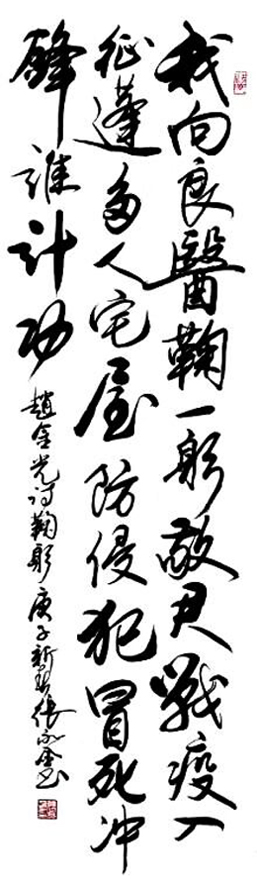 我向良醫鞠一躬敬君戰疫入
征蓬多人宅屋防侵犯冒死冲
鋒誰計功
趙金光詩鞠躬 庚子新春 張永金书